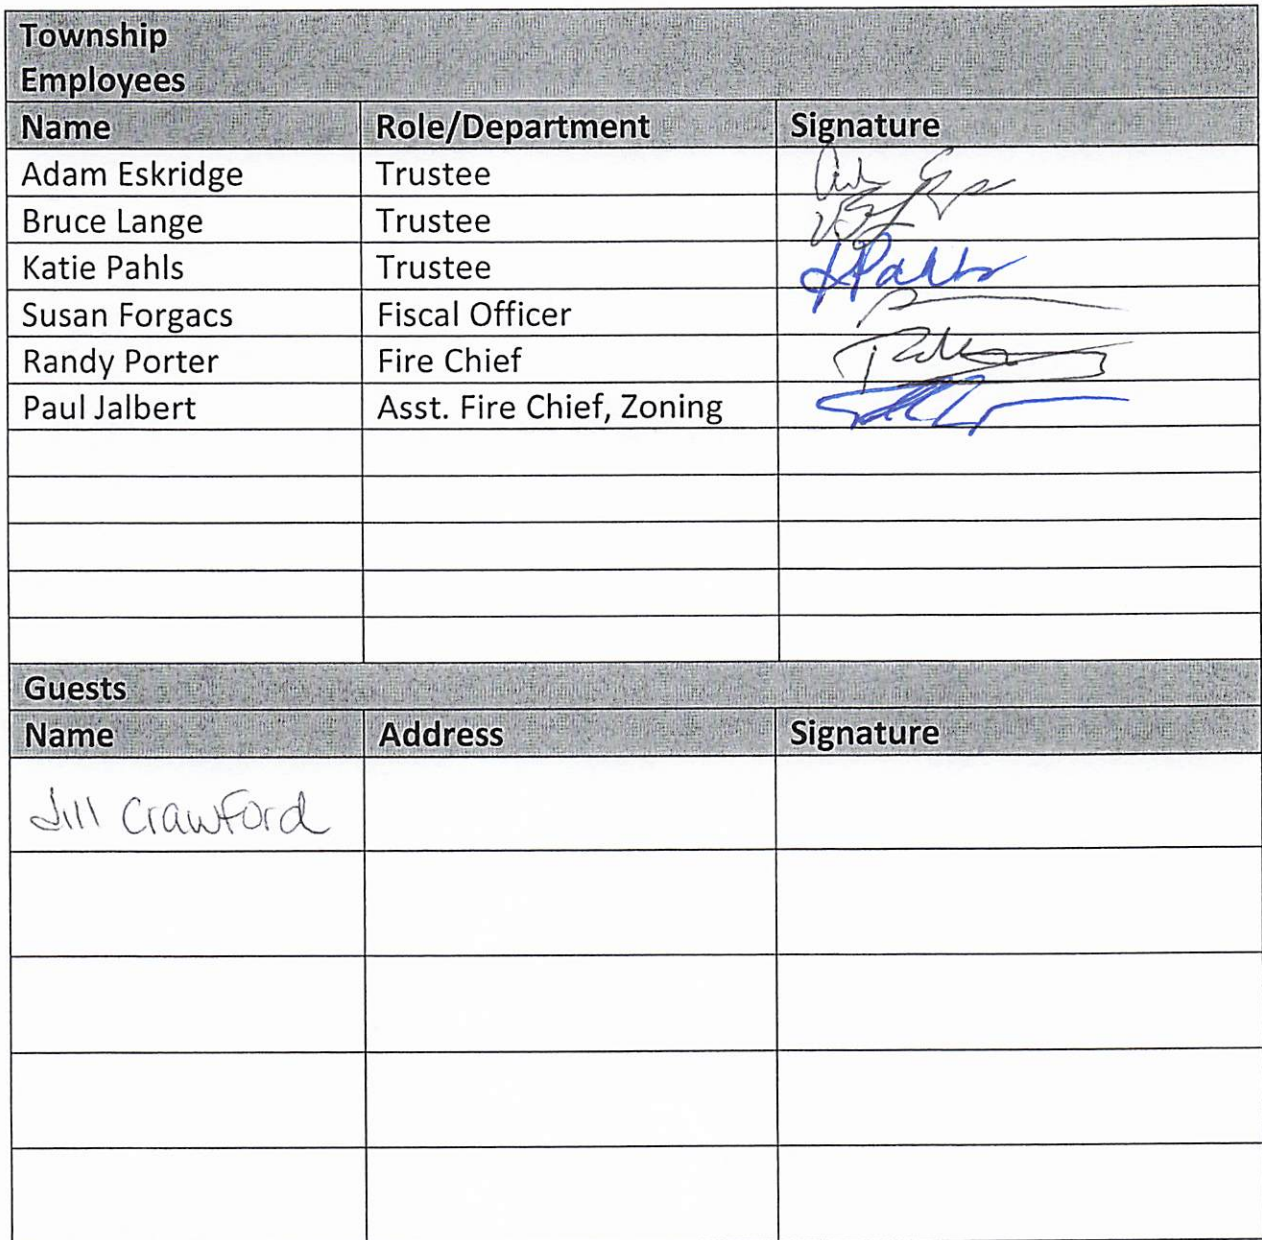 Township
Employees
Name Role/Department Signature
Adam Eskridge Trustee
Bruce Lange Trustee
Katie Pahls Trustee
Susan Forgacs Fiscal Officer
Randy Porter Fire Chief
Paul Jalbert Asst. Fire Chief, Zoning
Guests
Name Address Signature
Jill Crawford